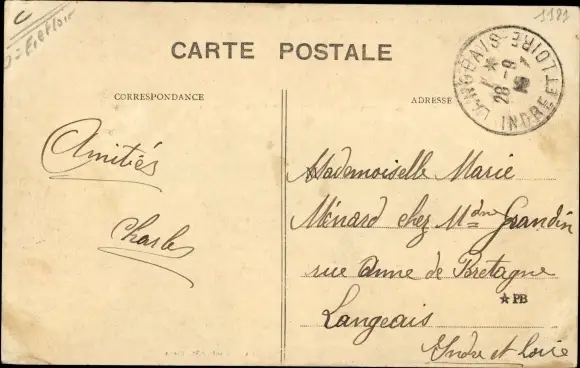 1181
CARTE POSTALE
CORRESPONDANCE
ADRESSE
LANGEAIS
28 - 9
INDRE ET LOIRE
Amitiés
Charles
Mademoiselle Marie
Ménard chez Mdme Grandin
rue Anne de Bretagne
★ PB
Langeais
Indre et Loire